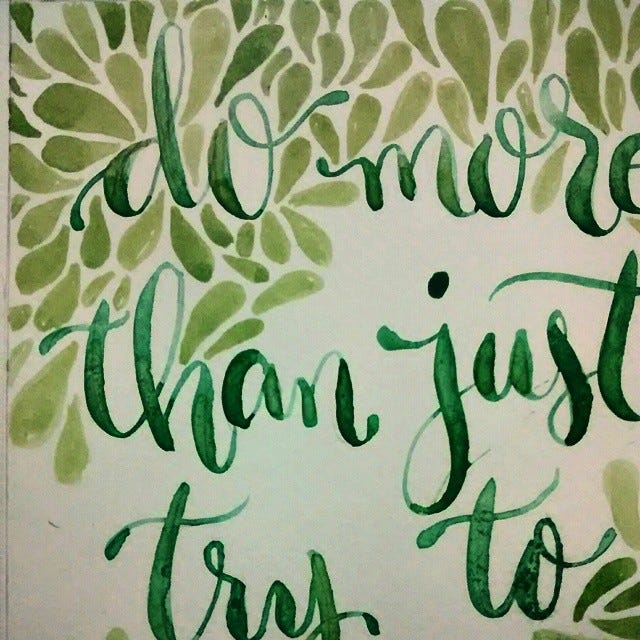 do more
than just
try to